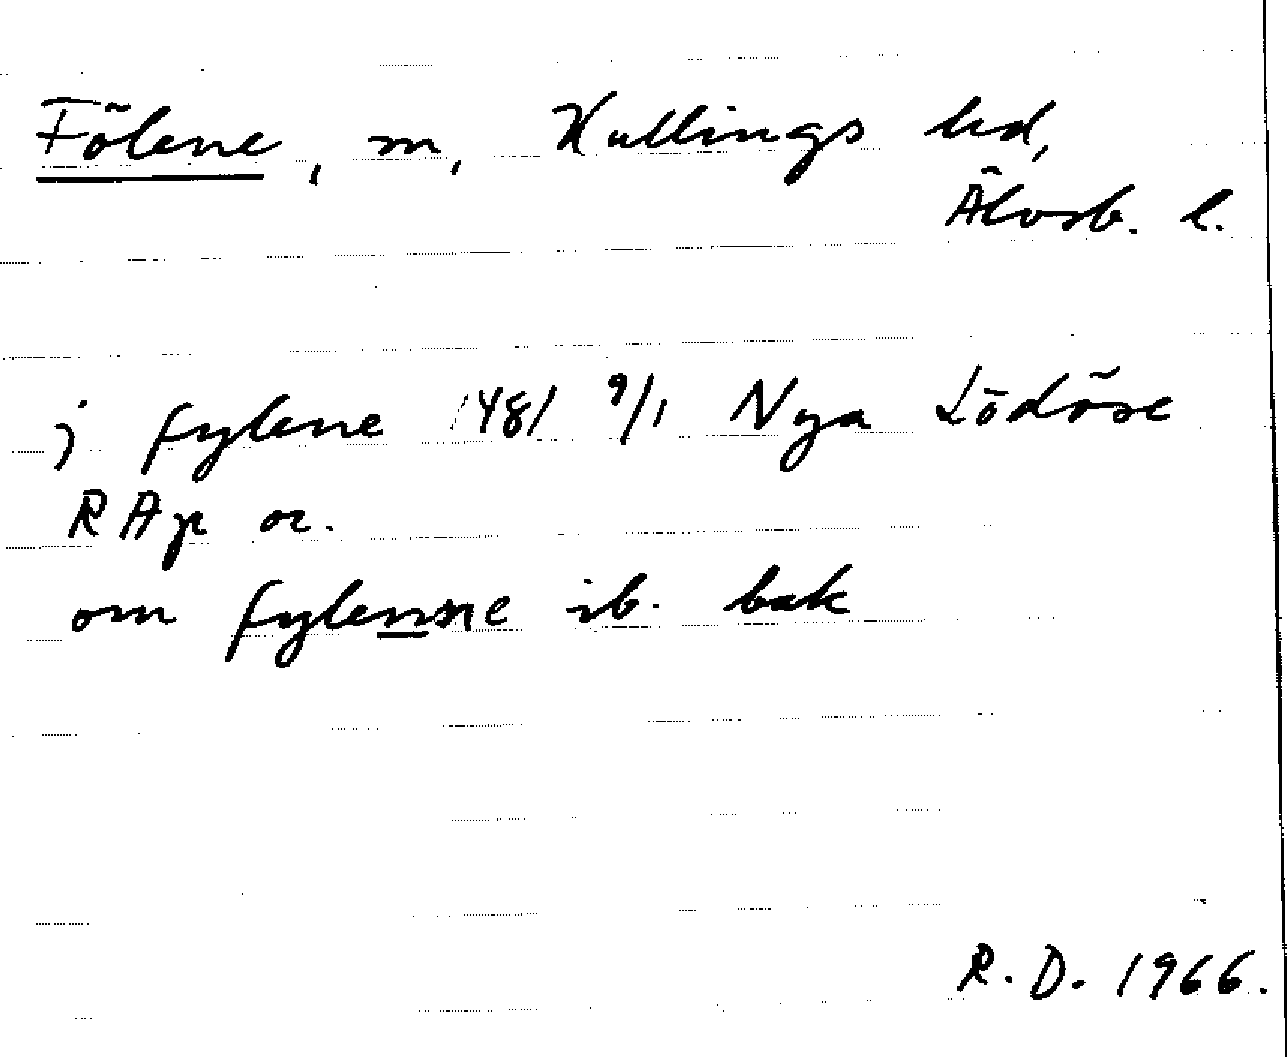 Fölene, m, Kullings hd,
Älvsb. l.
j fylene 1481 9/1 Nya Lödöse
RAp or.
om fylenne ib. bak
R. D. 1966.